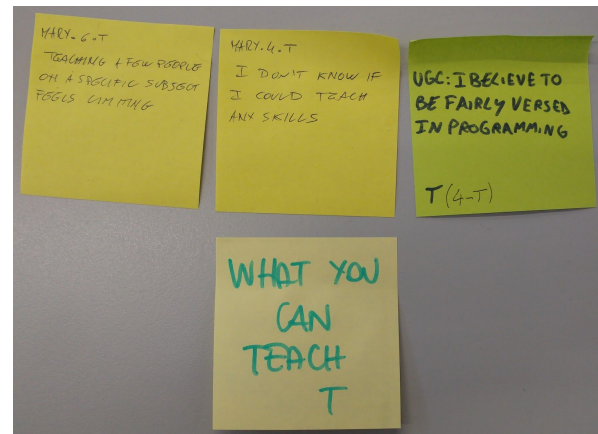 MARY-6-T
TEACHING A FEW PEOPLE
ON A SPECIFIC SUBJECT
FEELS LIMITING
MARY-4-T
I DON'T KNOW IF
I COULD TEACH
ANY SKILLS
UGC: I BELIEVE TO
BE FAIRLY VERSED
IN PROGRAMMING
T (4-T)
WHAT YOU
CAN
TEACH
T